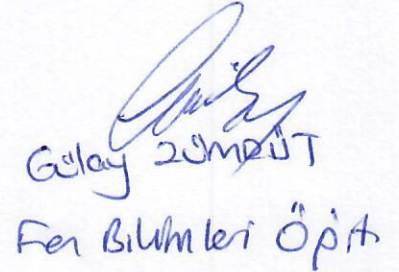 Gülay ZÜMRÜT
Fen Bilimleri Öğrt